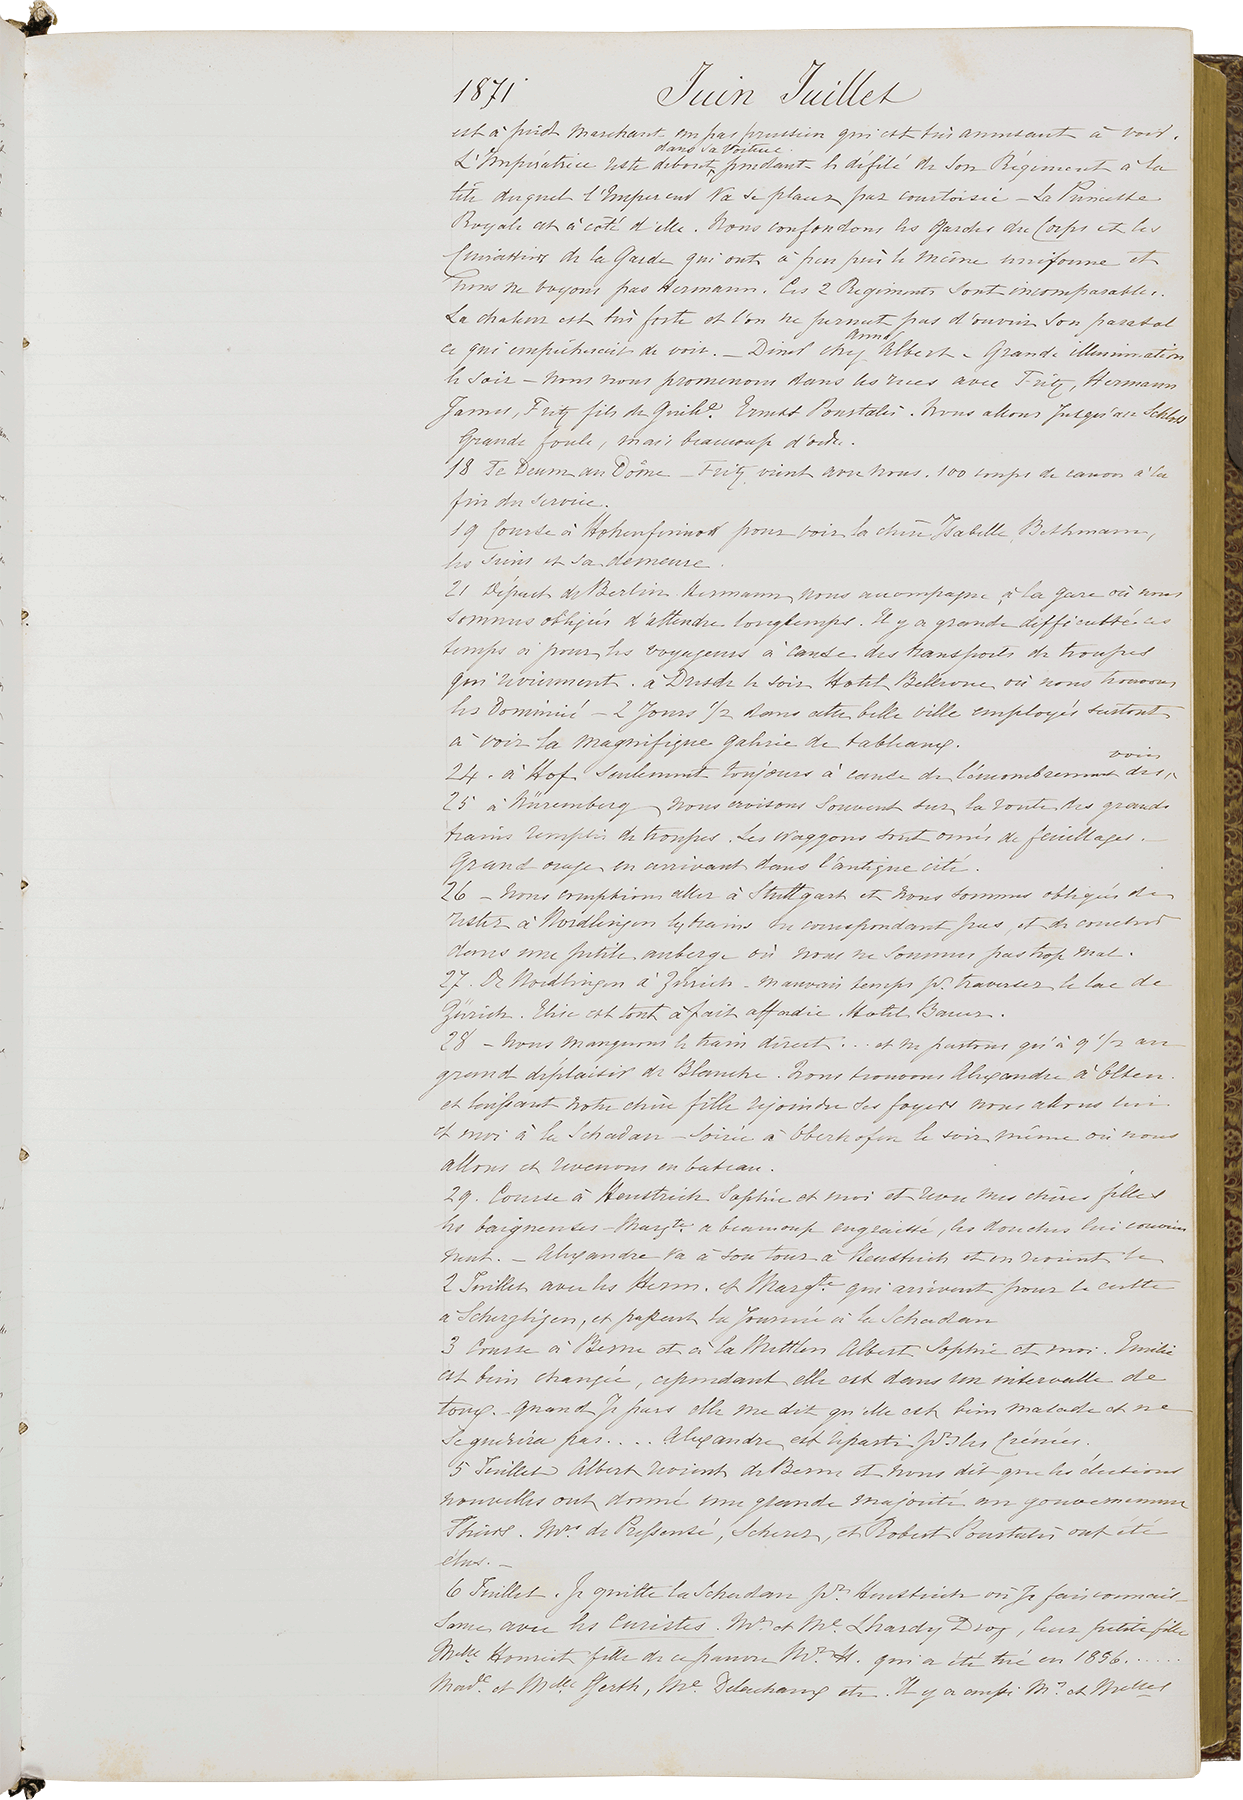 1871 Juin Juillet
est à pied marchant au pas prussien qui est très amusant à voir.
dans sa voiture
L'Impératrice reste debout pendant le défilé de son Régiment à la
tête duquel l'Empereur va se placer par courtoisie – La Princesse
Royale est à côté d'elle. Nous confondons les Gardes du Corps et les
Cuirassiers de la Garde qui ont à peu près le même uniforme et
nous ne voyons pas Hermann. Ces 2 Régiments sont incomparables.
La chaleur est très forte et l'on ne permet pas d'ouvrir son parasol
ce qui empêcherait de voir. – Diner chez Anna Albert – Grande illumination
le soir – nous nous promenons dans les rues avec Fritz, Hermann
James, Fritz fils de Guill.e Ernest Pourtalès. Nous allons jusqu'au Schloss
Grande foule, mais beaucoup d'ordre.
18 Te Deum au Dôme – Fritz vient avec nous. 100 coups de canon à la
fin du service.
19 Course à Hohenfinow pour voir la chère Isabelle Bethmann,
les siens et sa demeure.
21 Départ de Berlin Hermann nous accompagne à la gare où nous
sommes obligés d'attendre longtemps. Il y a grande difficulté ces
temps ci pour les voyageurs à cause des transports de troupes
qui reviennent. à Dresde le soir Hotel Bellevue où nous trouvons
les Dominicé – 2 Jours 1/2 dans cette belle ville employés surtout
à voir la magnifique galerie de tableaux.
24. à Hof seulement toujours à cause de l'encombrement des voies
25 à Nüremberg – nous croisons souvent sur la route des grands
trains remplis de troupes. Les waggons sont ornés de feuillages. –
Grand orage en arrivant dans l'antique cité.
26 – nous comptions aller à Stuttgart et nous sommes obligés de
rester à Nördlingen les trains ne correspondant pas, et de coucher
dans une petite auberge où nous ne sommes pas trop mal.
27. De Nordlingen à Zürich – mauvais temps pr. traverser le lac de
Zürich. Elise est tout à fait affadie. Hotel Bauer.
28 – nous manquons le train direct... et ne partons qu'à 9 1/2 au
grand déplaisir de Blanche. Nous trouvons Alexandre à Olten
et laissant notre chère fille rejoindre ses foyers nous allons lui
et moi à la Schadau – Soirée à Oberhofen le soir même où nous
allons et revenons en bateau.
29. Course à Heustrich Sophie et moi et revu mes chères filles
les baigneuses – Margte. a beaucoup engraissé, les douches lui convien
nent. – Alexandre va à son tour à Heustrich et en revient le
2 Juillet avec les Herm. et Margte. qui arrivent pour le culte
à Scherzligen, et passent la journée à la Schadau
3 Course à Berne et à la Mettlen Albert Sophie et moi. Emilie
est bien changée, cependant elle est dans un intervalle de
toux. – quand je pars elle me dit qu'elle est bien malade et ne
se guérira pas.... Alexandre est reparti pr. les Crénées.
5 Juillet Albert revient de Berne et nous dit que les élections
nouvelles ont donné une grande majorité au gouvernement
Thiers. Mrs. de Pressensé, Scherer, et Robert Pourtalès ont été
élus. –
6 Juillet. Je quitte la Schadau pr. Heustrich où je fais connais-
sance avec les Curistes. Mr. et Me. Lhardy Droz, leur petite fille
Melle. Houriet fille de ce pauvre Mr. H. qui a été tué en 1856......
Made. et Melle. , Me. Delachaux etc. Il y a aussi Mr. et Melles